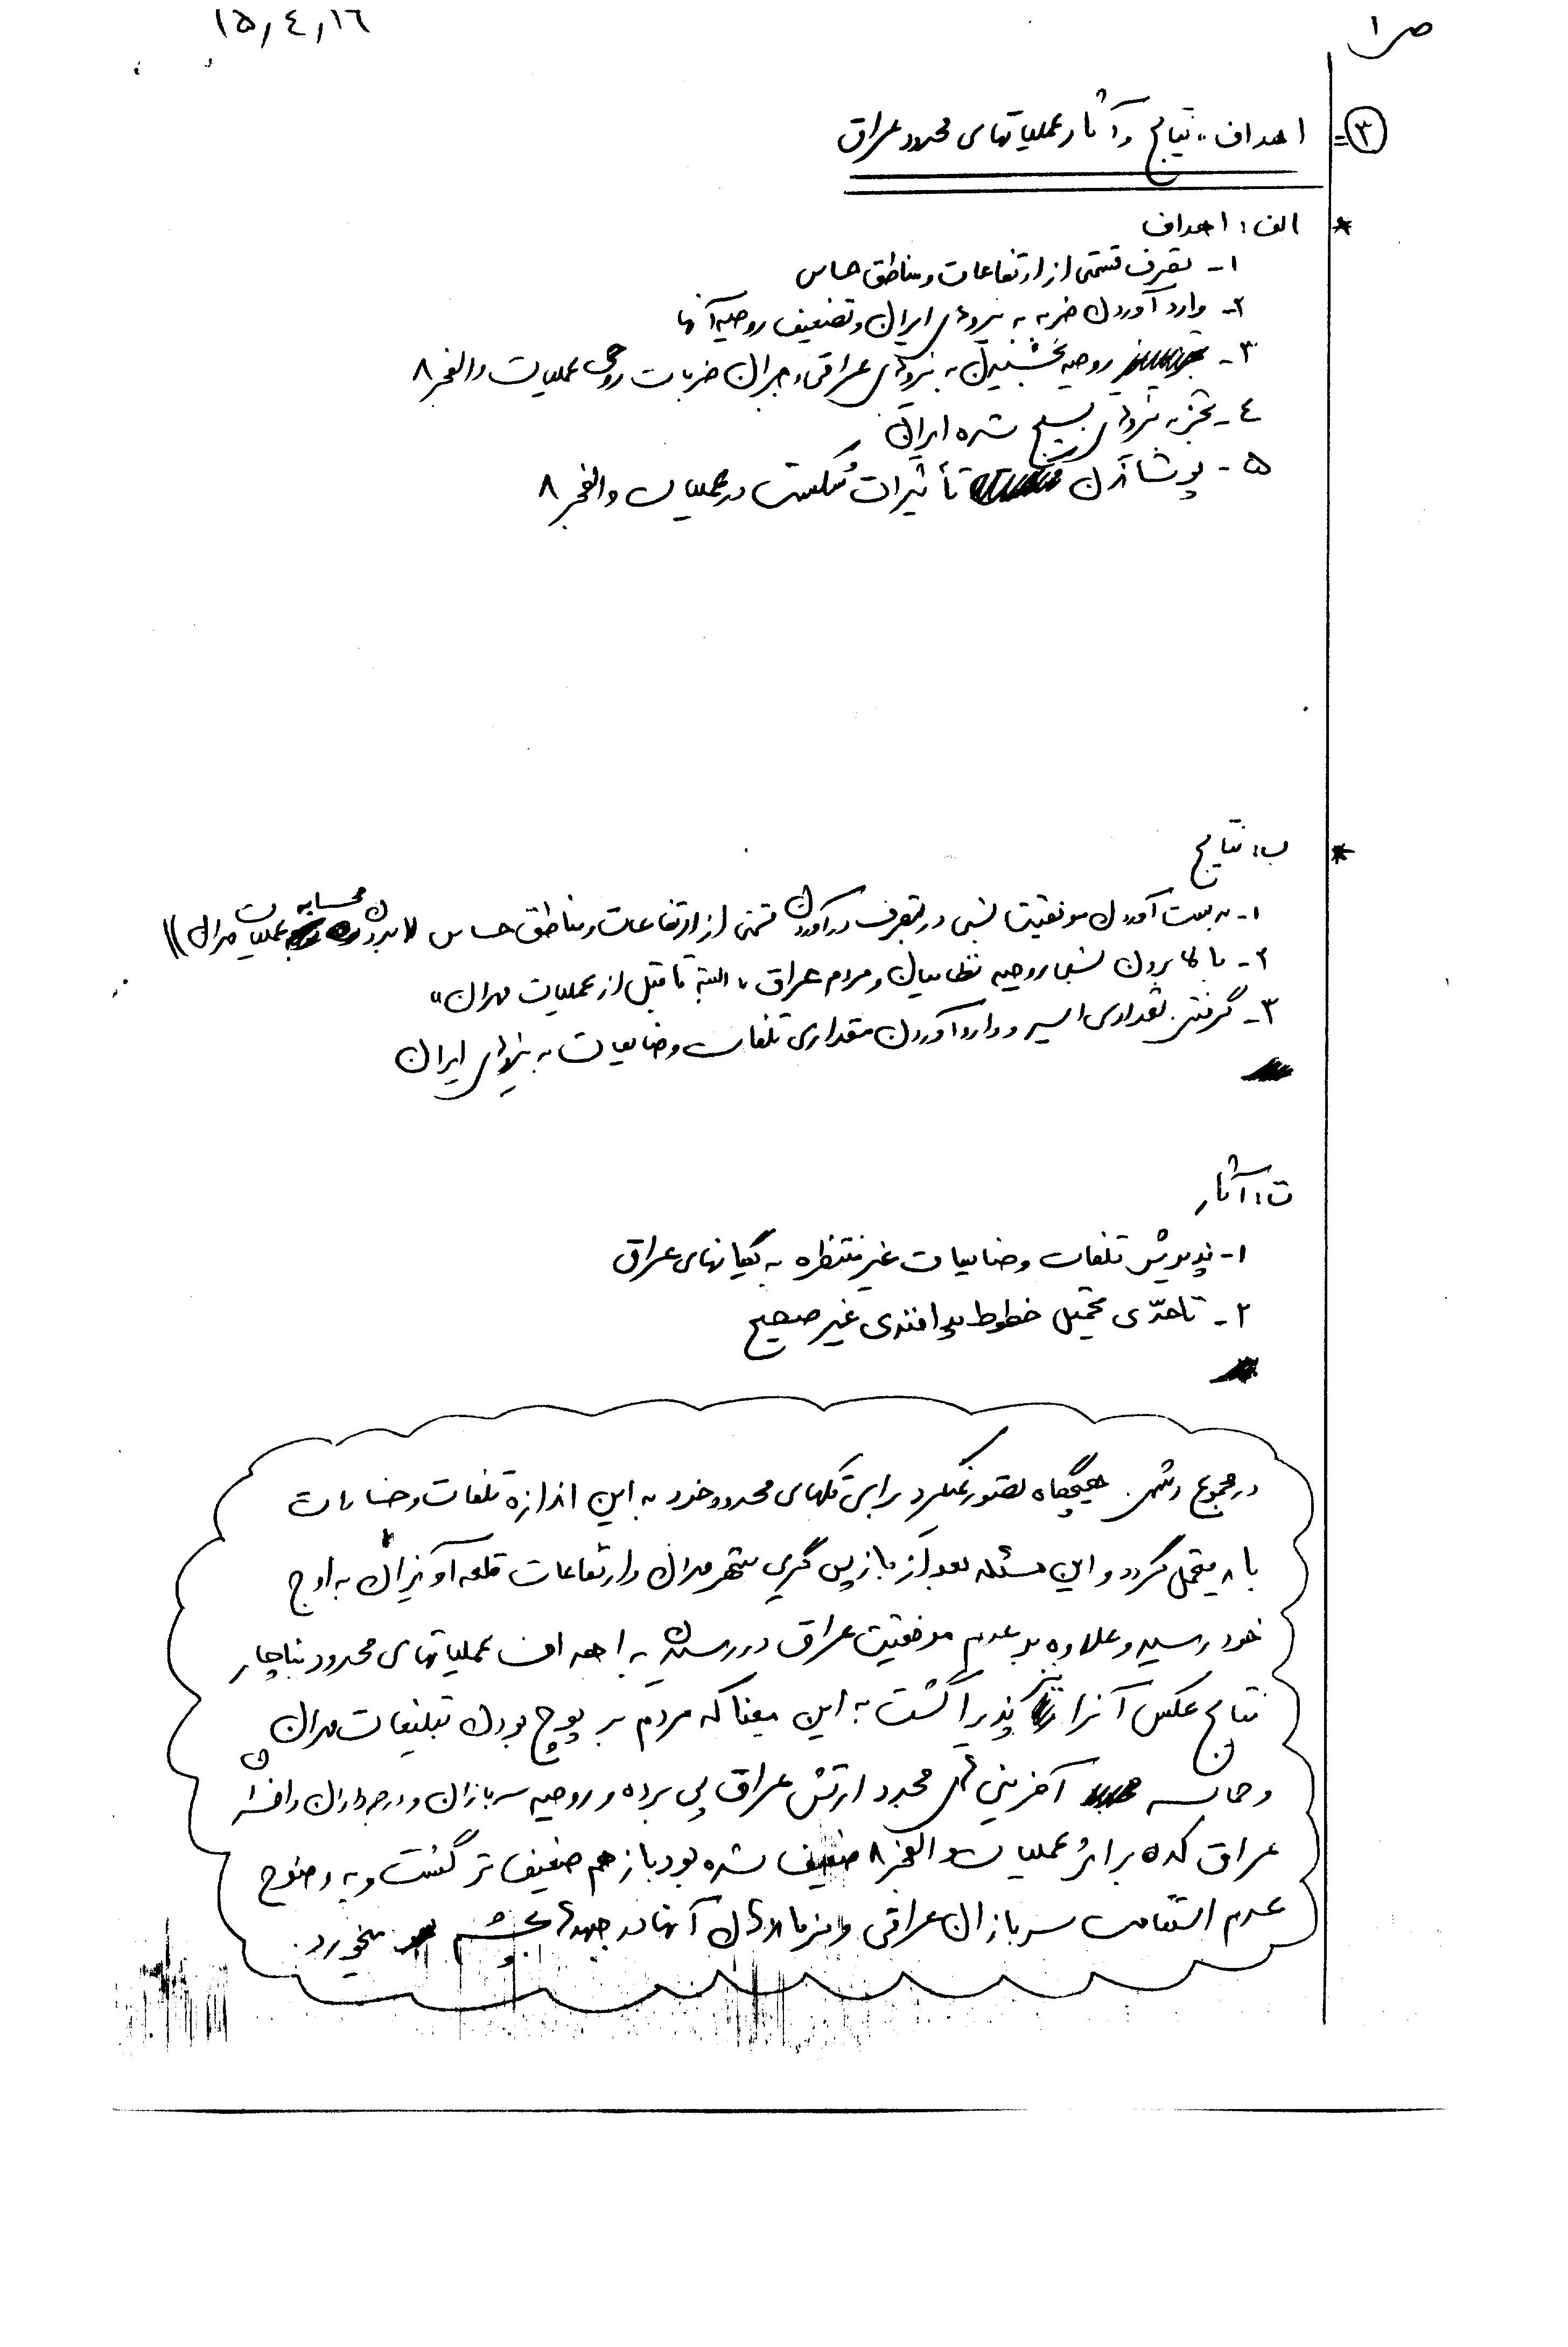 ص ۱
۱۵,٤,۱٦
۳= اهداف، نتایج و آثار عملیاتهای محدود عراق
* الف: اهداف
۱- تصرف قسمتی از ارتفاعات و مناطق حساس
۲- وارد آوردن ضربه به نیروهای ایران و تضعیف روحیه آنها
۳- روحیه بخشیدن به نیروهای عراقی و جبران ضربات روحی عملیات والفجر ۸
٤- تجزیه نیروهای بسیج شده ایران
۵- پوشاندن تأثیرات شکست در عملیات والفجر ۸
* ب: نتایج
۱- بدست آوردن موفقیت نسبی در بتصرف درآوردن قسمتی از ارتفاعات و مناطق حساس «بدون محسابه عملیات مهران»
۲- بالا بردن نسبی روحیه نظامیان و مردم عراق «البته تا قبل از عملیات مهران»
۳- گرفتن تعدادی اسیر و وارد آوردن مقداری تلفات و ضایعات به نیروهای ایران
ت: آثار
۱- پذیرش تلفات و ضایعات غیر منتظره به یگانهای عراق
۲- تا حدّی تحمیل خطوط پدافندی غیر صحیح
در مجموع دشمن هیچگاه تصور نمیکرد برای تکهای محدود خود به این اندازه تلفات و خسارات
را متحمل گردد و این مسئله بعد از باز پس گیری شهر مهران و ارتفاعات قلعه آویزان به اوج
خود رسید و علاوه بر عدم موفقیت عراق در رسیدن به اهداف عملیاتهای محدود بناچار
نتایج عکس آنرا نیز پذیرا گشت به این معنا که مردم بر پوچ بودن تبلیغات مهران
و حماسه آفرینی های مجدد ارتش عراق پی برده و روحیه سربازان و درجه داران و افسران
عراق که بر اثر عملیات والفجر ۸ ضعیف شده بود باز هم ضعیف تر گشت و به وضوح
عدم استقامت سربازان عراقی و فرماندهان آنها در جبهه ها بچشم میخورد.